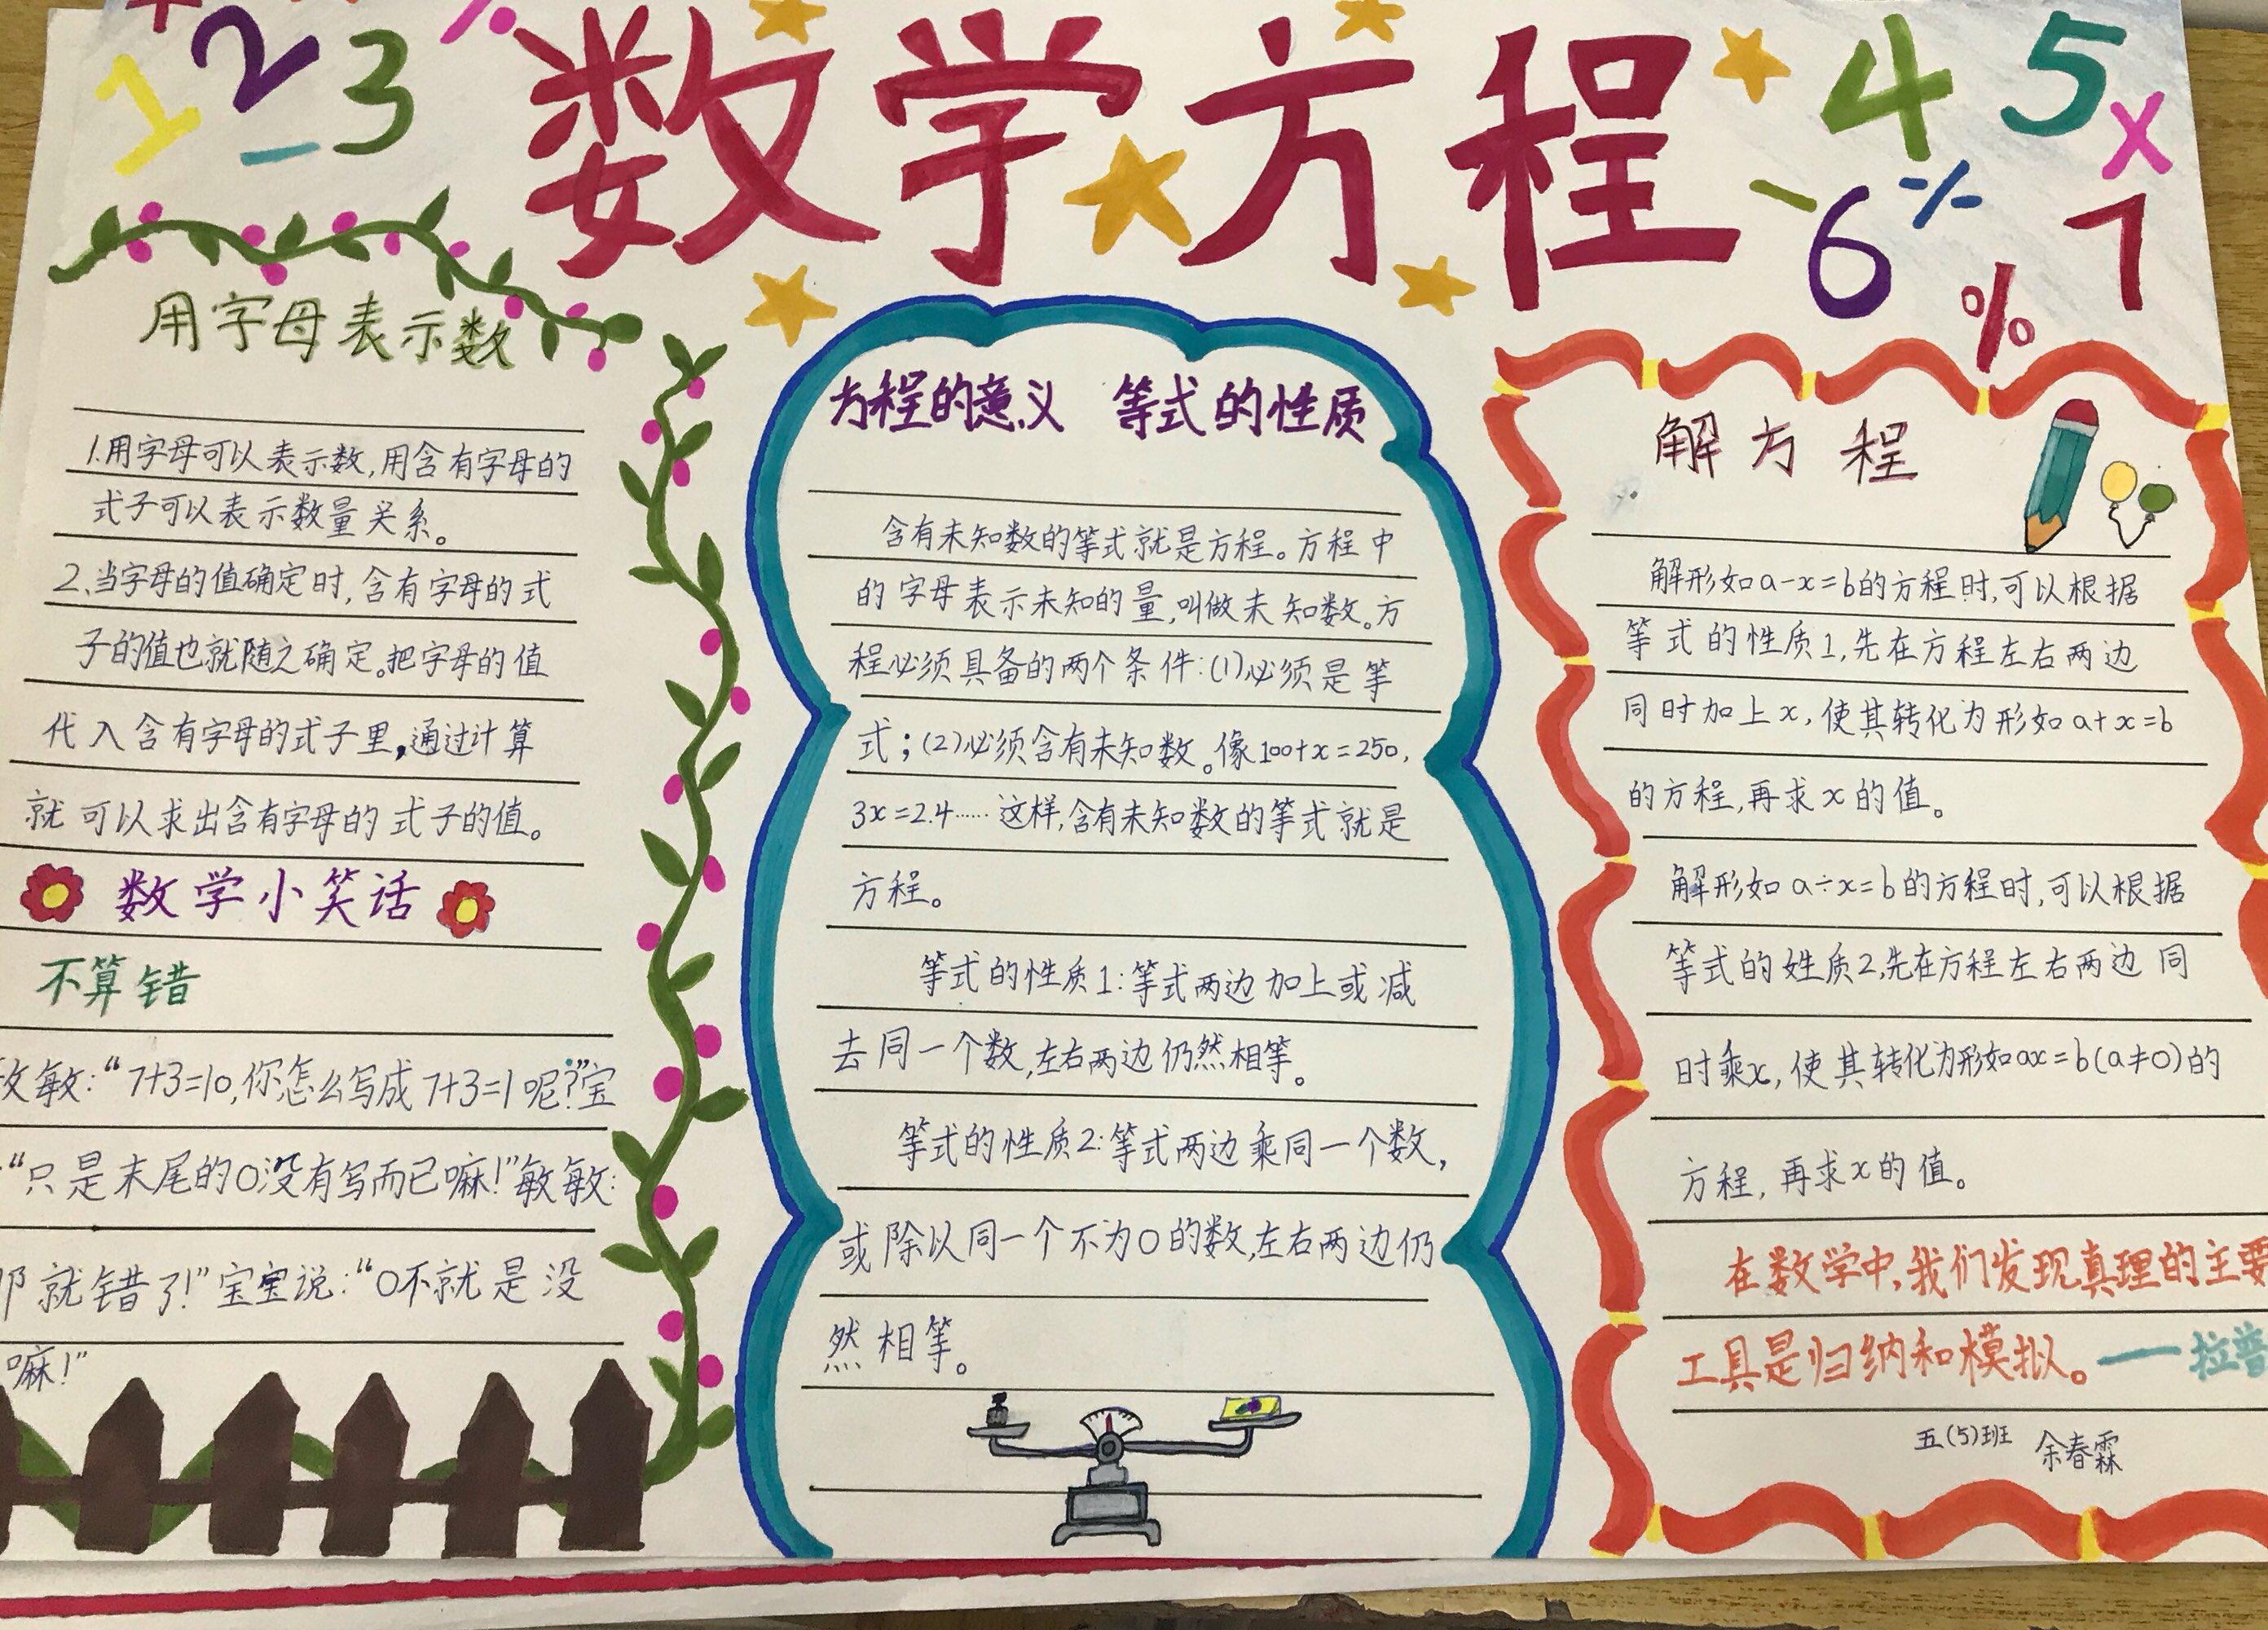 + %
1 2 3
-
数学方程
4 5
- 6 ÷ x
% 7
用字母表示数
1.用字母可以表示数,用含有字母的
式子可以表示数量关系。
2.当字母的值确定时,含有字母的式
子的值也就随之确定。把字母的值
代入含有字母的式子里,通过计算
就可以求出含有字母的式子的值。
数学小笑话
不算错
敏:“7+3=10,你怎么写成7+3=1呢?”宝
:“只是末尾的0没有写而已嘛!”敏敏:
就错了!”宝宝说:“0不就是没
嘛!”
方程的意义 等式的性质
含有未知数的等式就是方程。方程中
的字母表示未知的量,叫做未知数。方
程必须具备的两个条件:(1)必须是等
式;(2)必须含有未知数。像100+x=250,
3x=2.4……这样,含有未知数的等式就是
方程。
等式的性质1:等式两边加上或减
去同一个数,左右两边仍然相等。
等式的性质2:等式两边乘同一个数,
或除以同一个不为0的数,左右两边仍
然相等。
解方程
解形如a-x=b的方程时,可以根据
等式的性质1,先在方程左右两边
同时加上x,使其转化为形如a+x=b
的方程,再求x的值。
解形如a÷x=b的方程时,可以根据
等式的姓质2,先在方程左右两边同
时乘x,使其转化为形如ax=b(a≠0)的
方程,再求x的值。
在数学中,我们发现真理的主要
工具是归纳和模拟。——拉普
五(5)班 余春霖